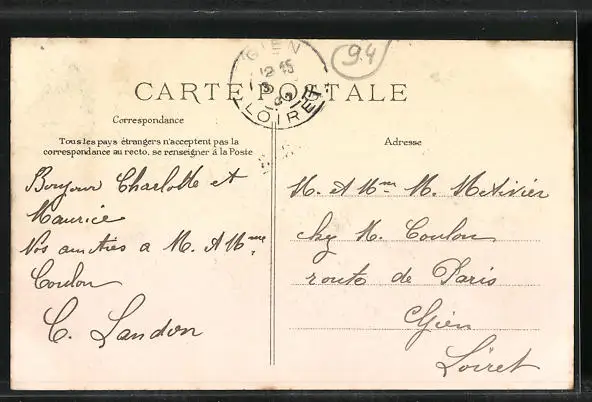 GIEN
94
12 15
LOIRET
CARTE POSTALE
Correspondance
Tous les pays étrangers n'acceptent pas la
correspondance au recto, se renseigner à la Poste
Adresse
Bonjour Charlotte et
Maurice
Nos amitiés a M. et Mme
Coulon
C. Landon
M. et Mme M. Métivier
chez M. Coulon
route de Paris
Gien
Loiret